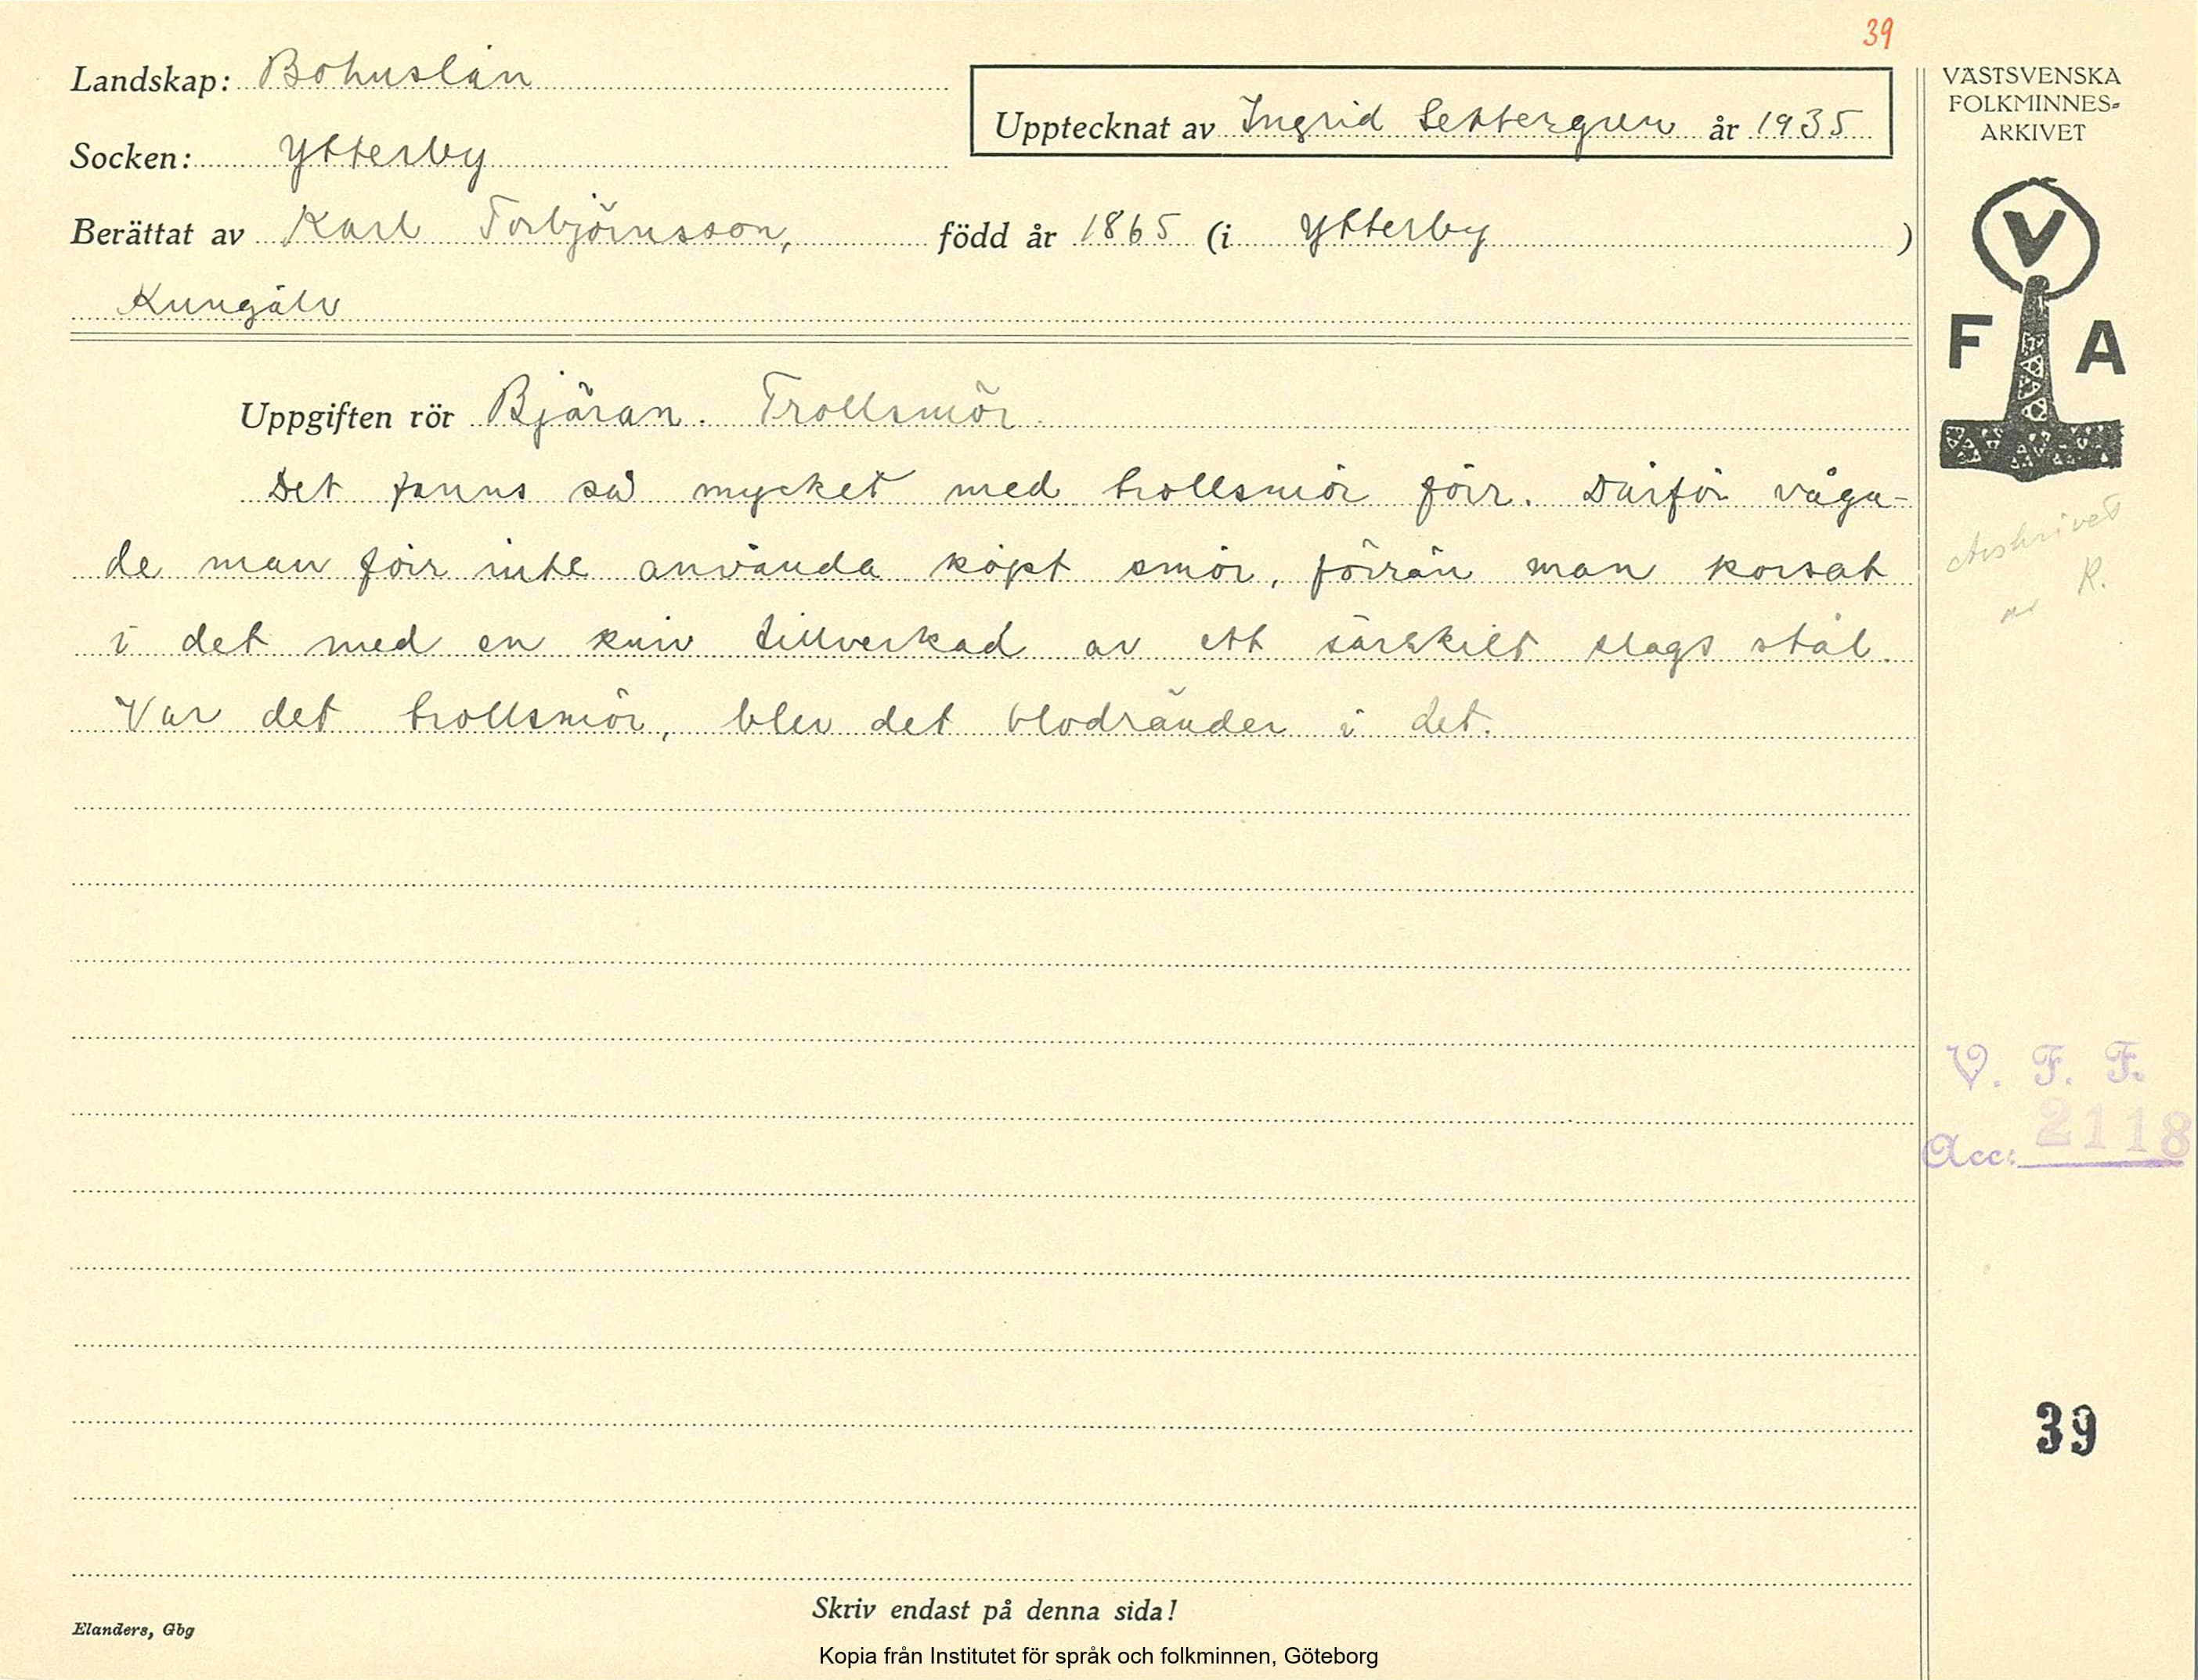 39
Landskap: Bohuslän
Upptecknat av Ingrid Settergren år 1935
VÄSTSVENSKA
FOLKMINNES-
ARKIVET
Socken: Ytterby
Berättat av Karl Torbjörnsson, född år 1865 (i Ytterby )
Kungälv
V
F A
Uppgiften rör Bjäran. Trollsmör.
Det fanns så mycket med trollsmör förr. Därför våga-
de man förr inte använda köpt smör, förrän man korsat
i det med en kniv tillverkad av ett särskilt slags stål.
Var det trollsmör, blev det blodränder i det.
Avskrivet
av R.
V. F. F.
Acc: 2118
39
Skriv endast på denna sida!
Elanders, Gbg
Kopia från Institutet för språk och folkminnen, Göteborg